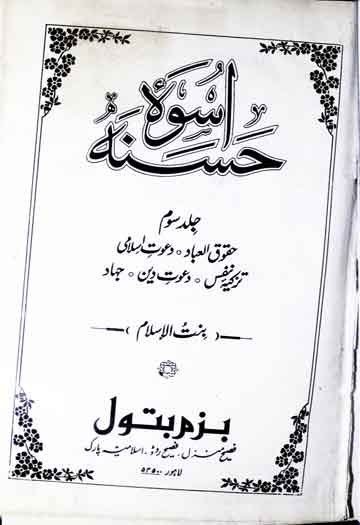 اسوۂ
حسنہ
جلد سوم
حقوق العباد ٥ دعوت اسلامی
تزکیۂ نفس ٥ دعوت دین ٥ جہاد
(بنت الاسلام)
بزم بتول
فصیح منزل، فصیح روڈ، اسلامیہ پارک
لاہور ۵۴۵۰۰